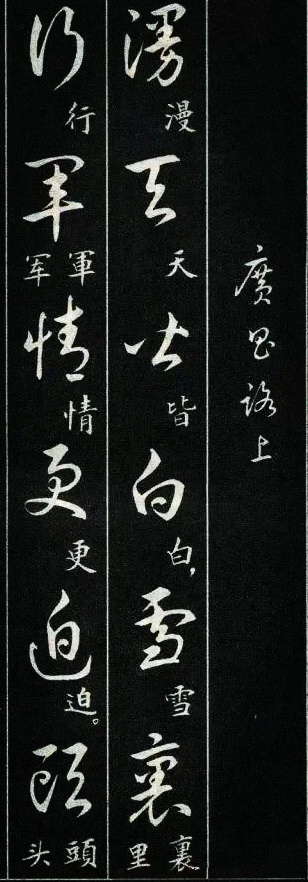 廣昌路上
漫天皆白雪裏
漫天皆白，雪裏里
行軍情更迫頭
行軍军情更迫。頭头